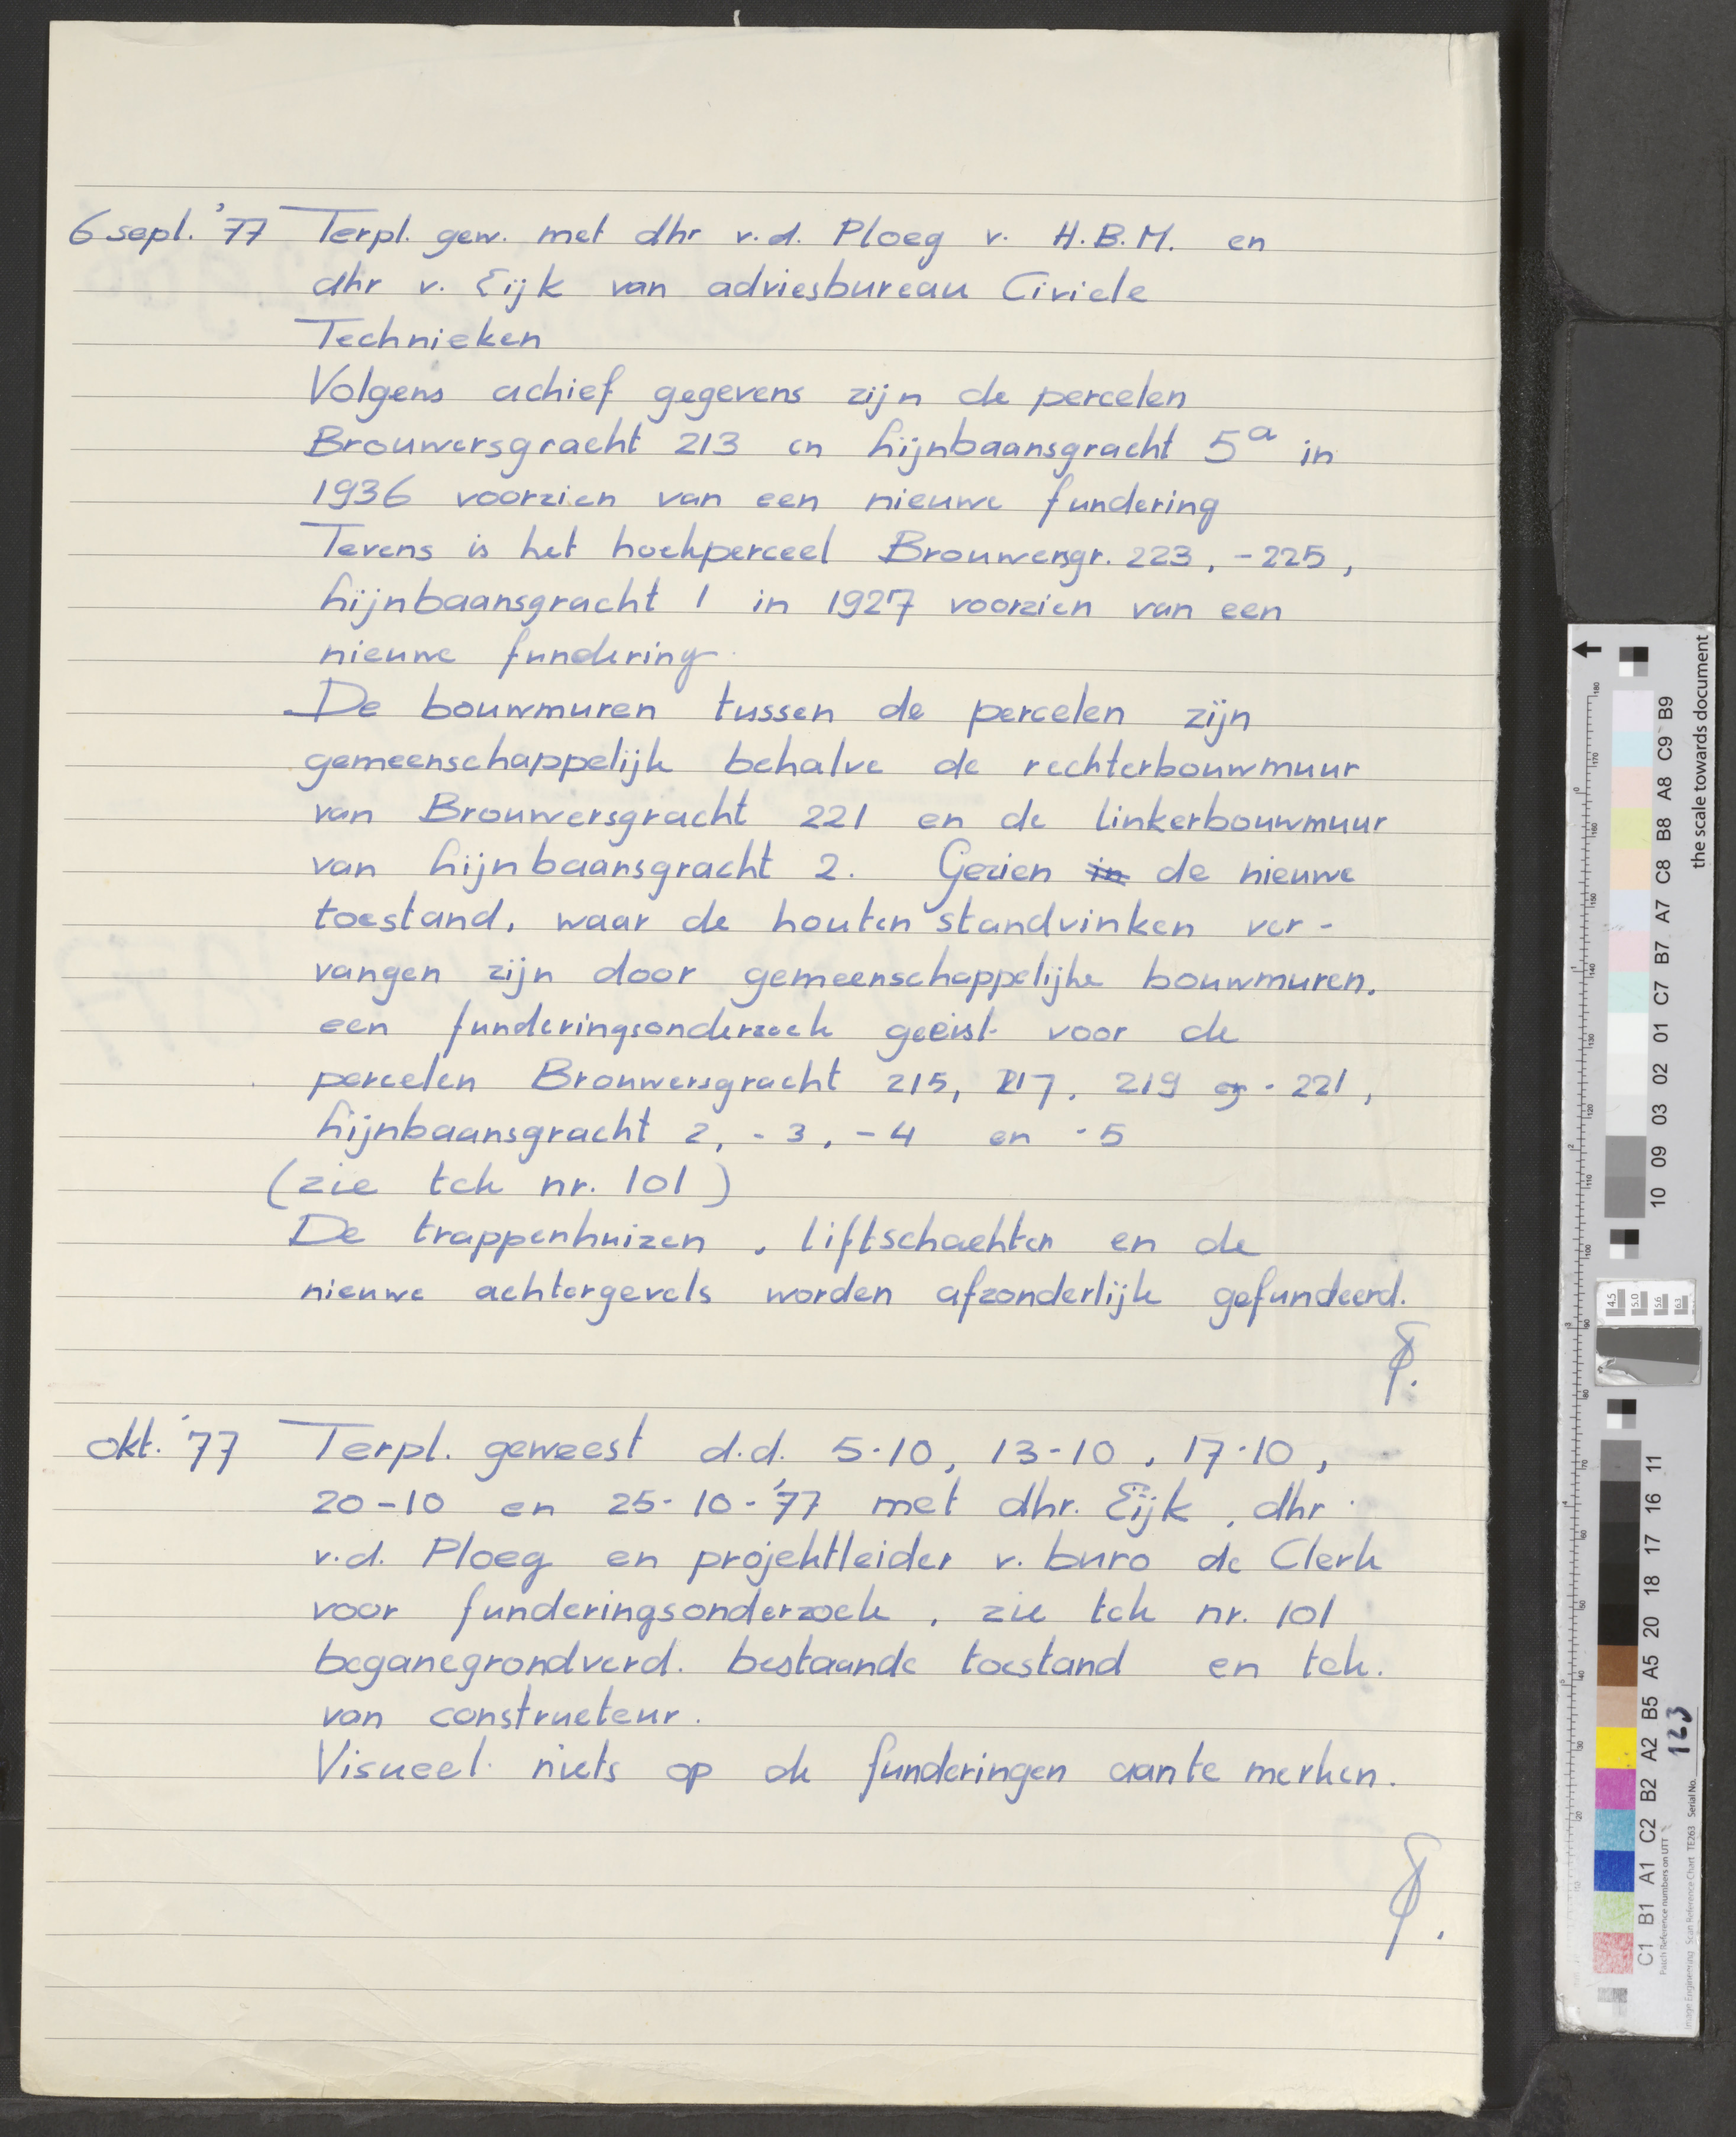 6 sept. '77 Terpl. gew. met dhr v.d. Ploeg v. H.B.M. en
dhr v. Eijk van adviesbureau Civiele
Technieken
Volgens achief gegevens zijn de percelen
Brouwersgracht 213 en Lijnbaansgracht 5a in
1936 voorzien van een nieuwe fundering
Tevens is het hoekperceel Brouwersgr. 223, -225,
Lijnbaansgracht 1 in 1927 voorzien van een
nieuwe fundering.
De bouwmuren tussen de percelen zijn
gemeenschappelijk behalve de rechterbouwmuur
van Brouwersgracht 221 en de linkerbouwmuur
van Lijnbaansgracht 2. Gezien in de nieuwe
toestand, waar de houten standvinken ver-
vangen zijn door gemeenschappelijke bouwmuren.
een funderingsonderzoek geëist voor de
percelen Brouwersgracht 215, 217, 219 en - 221,
Lijnbaansgracht 2, - 3, - 4 en - 5
(zie tek nr. 101)
De trappenhuizen, liftschachten en de
nieuwe achtergevels worden afzonderlijk gefundeerd.
okt. '77 Terpl. geweest d.d. 5-10, 13-10, 17-10,
20-10 en 25-10-'77 met dhr. Eijk, dhr.
v.d. Ploeg en projektleider v. buro de Clerk
voor funderingsonderzoek, zie tek nr. 101
beganegrondverd. bestaande toestand en tek.
van constructeur.
Visueel niets op de funderingen aan te merken.
the scale towards document
B9 C9 A8 B8 C8 A7 B7 C7 01 02 03 09 10
4.5 5.0 5.6 6.3
11 16 17 18 20 A5 B5 A2 B2 C2 A1 B1 C1
Patch Reference numbers on UTT
Image Engineering Scan Reference Chart TE263 Serial No. 123